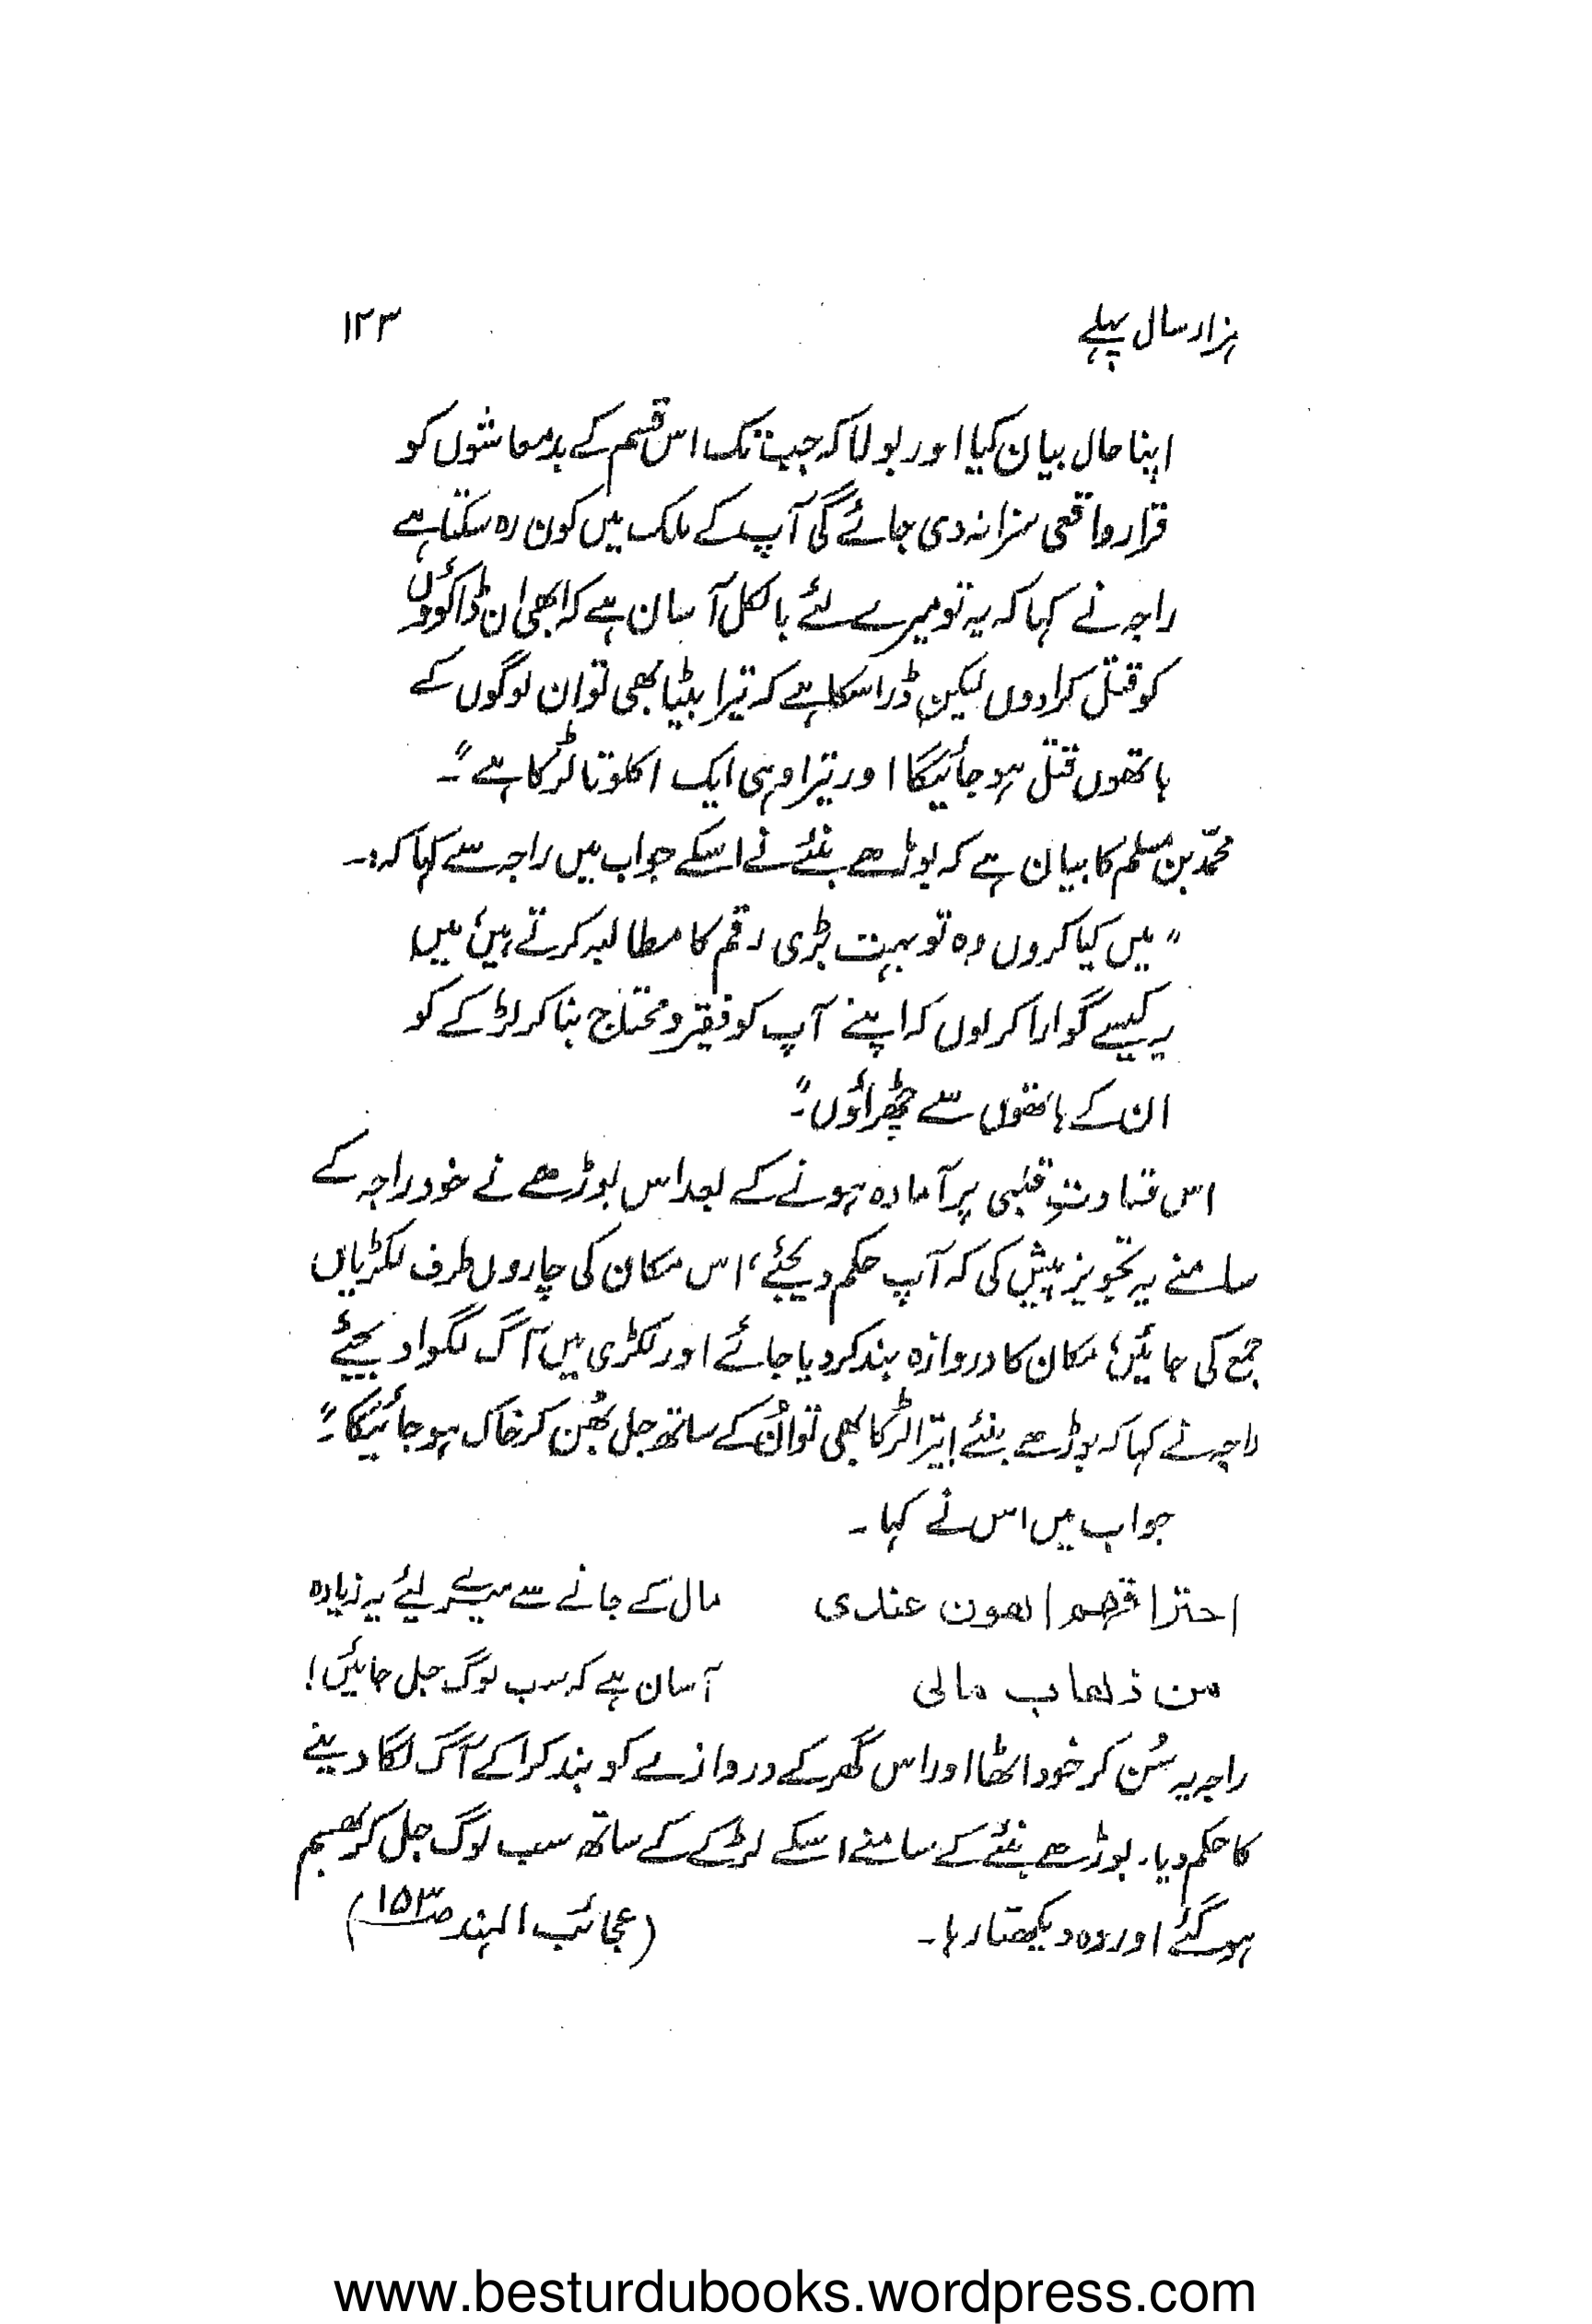 ہزار سال پہلے ۱۲۳
اپنا حال بیان کیا اور بولا کہ جب تک اس قسم کے بدمعاشوں کو
قرار واقعی سزا نہ دی جائے گی آپ کے ملک میں کون رہ سکتا ہے
راجہ نے کہا کہ یہ تو میرے لئے بالکل آسان ہے کہ ابھی ان ڈاکوؤں
کو قتل کرادوں لیکن ڈر اسکا ہے کہ تیرا بیٹا بھی تو ان لوگوں کے
ہاتھوں قتل ہو جائیگا اور تیرا وہی ایک اکلوتا لڑکا ہے"۔
محمّد بن مسلم کا بیان ہے کہ بوڑھے بنئے نے اسکے جواب میں راجہ سے کہا کہ:۔
"میں کیا کروں وہ تو بہت بڑی رقم کا مطالبہ کرتے ہیں، میں
یہ کیسے گوارا کر لوں کہ اپنے آپ کو فقیر و محتاج بنا کر لڑکے کو
ان کے ہاتھوں سے چھڑاؤں"۔
اس قساوتِ قلبی پر آمادہ ہونے کے بعد اس بوڑھے نے خود راجہ کے
سامنے یہ تجویز پیش کی کہ آپ حکم دیجئے، اس مکان کی چاروں طرف لکڑیاں
جمع کی جائیں، مکان کا دروازہ بند کر دیا جائے اور لکڑی میں آگ لگوا دیجئے
راجہ نے کہا کہ بوڑھے بنئے! تیرا لڑکا بھی تو اُن کے ساتھ جل بھُن کر خاک ہو جائیگا"۔
جواب میں اس نے کہا۔
احتراقھم اھون عندی مال کے جانے سے میرے لیئے یہ زیادہ
من ذھاب مالی آسان ہے کہ سب لوگ جل جائیں!
راجہ یہ سُن کر خود اٹھا اور اس گھر کے دروازے کو بند کرا کے آگ لگا دینے
کا حکم دیا۔ بوڑھے بنئے کے سامنے اسکے لڑکے کے ساتھ سب لوگ جل کر بھسم
ہو گئے اور وہ دیکھتا رہا۔ (عجائب الہند صـ ۱۵۳)
www.besturdubooks.wordpress.com